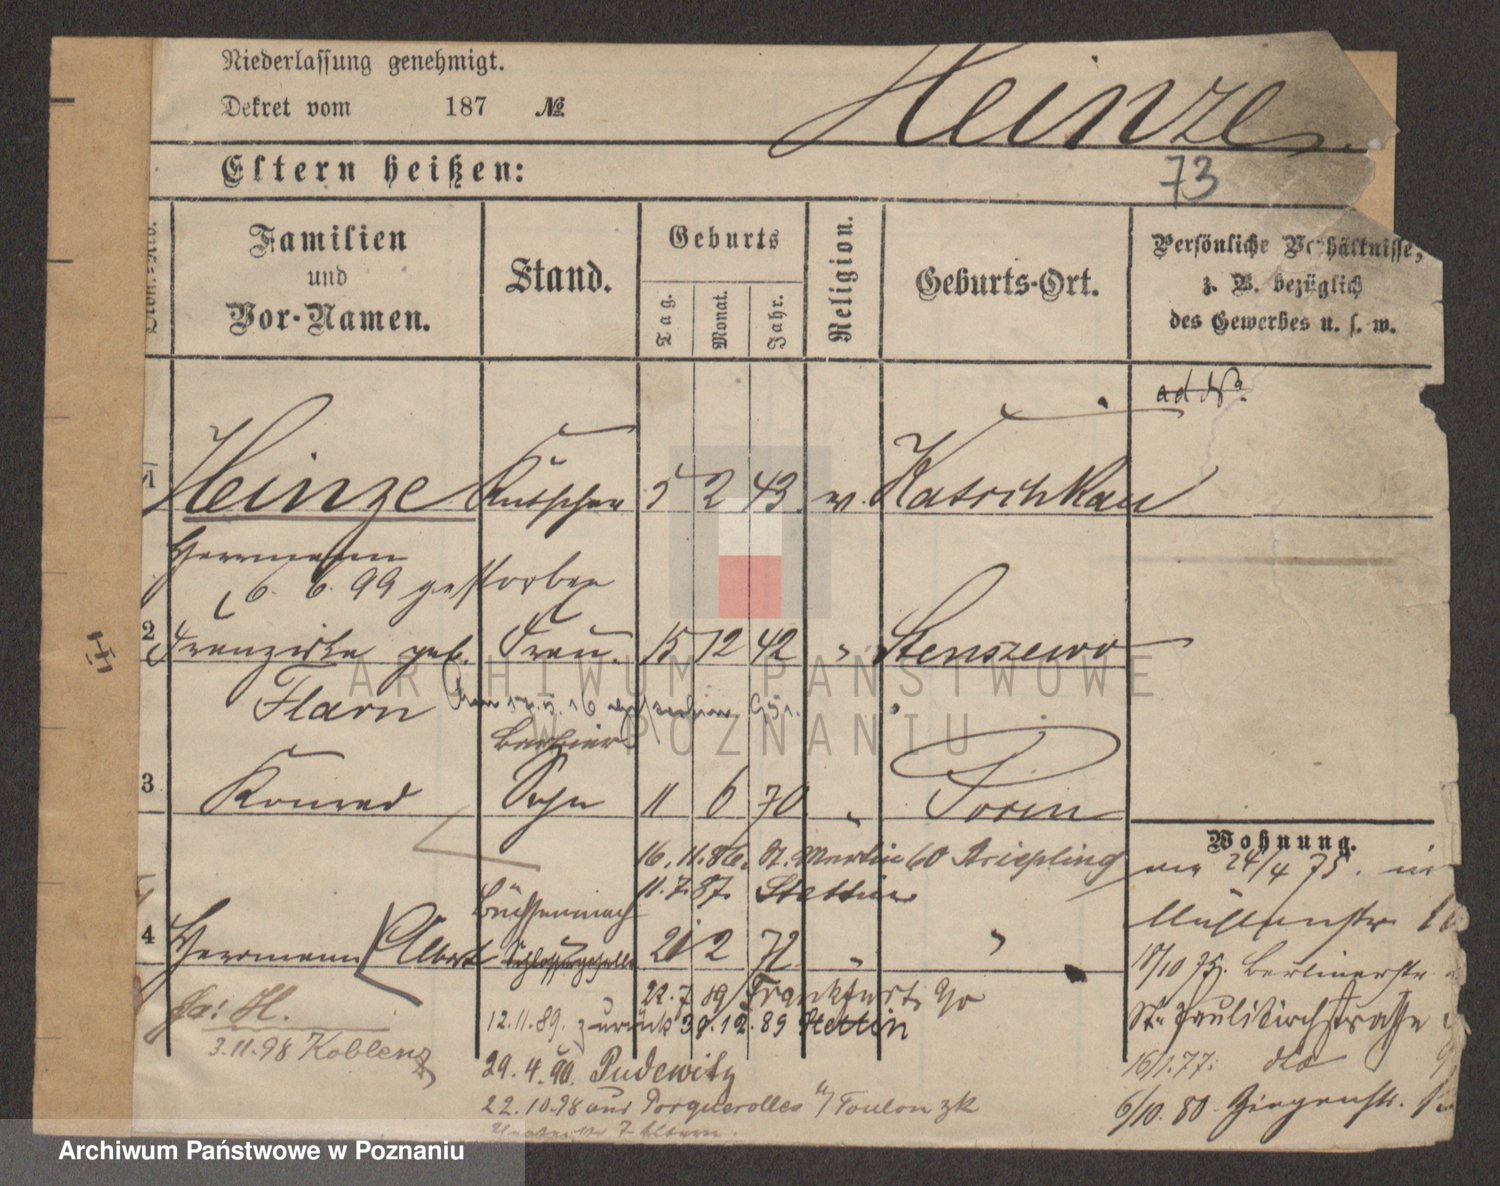 Niederlassung genehmigt.
Dekret vom 187 №
Heinze.
73
Eltern heißen:
Familien und Vor-Namen.
Stand.
Geburts
Tag.
Monat.
Jahr.
Religion.
Geburts-Ort.
Persönliche Verhältnisse, z. B. bezüglich des Gewerbes u. s. w.
ad No.
1 Heinze Kutscher 5 2 43 Katschkau
Herrmann
6. 6. 99 gestorben
2 Franziska geb. Frau. 15 12 42 " Stenszewo
Flarn
Barbier
3 Konrad Sohn 11 6 70 " Posen
Wohnung.
16. 11. 86. St. Martin 60
24/4 75. in
11. 7. 87. Stettin
Büchsenmach
4 Herrmann Albert Schlossergeselle 21 2 72 " "
18/10 75. Berlinerstr
22. 7 89 Frankfurt
12. 11. 89. zurück 30. 12. 89 Stettin
St. Paulikirchstraße
3. 11. 98 Koblenz
16/1. 77.
29. 4. 90. Pudewitz
22. 10. 98 aus Porquerolles Toulon zk
6/10. 80.
ARCHIWUM PAŃSTWOWE
W POZNANIU
Archiwum Państwowe w Poznaniu